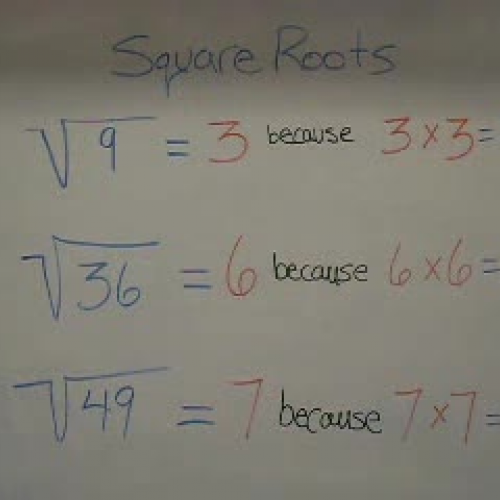 Square Roots
√9 = 3 because 3 x 3 =
√36 = 6 because 6 x 6 =
√49 = 7 because 7 x 7 =